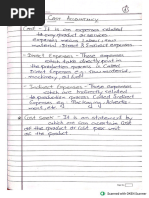 Cost Accountancy
Cost - It is an expenses related
to any product or service.
expenses means Labour, Raw
material, Direct & Indirect expenses
- Direct Expenses - Those expenses
which take directly part in
the production process is called
Direct Expenses e.g. Raw material,
machinery, oil &
- Indirect Expenses - These expenses
which are indirectly related
to production process Called Indirect
Expenses e.g. Packaging, Advertis-
ment, etc
Cost Sheet - It is an statement by
which we can ascertain Cost
of the product or Cost per unit
of the product.
CS Scanned with OKEN Scanner